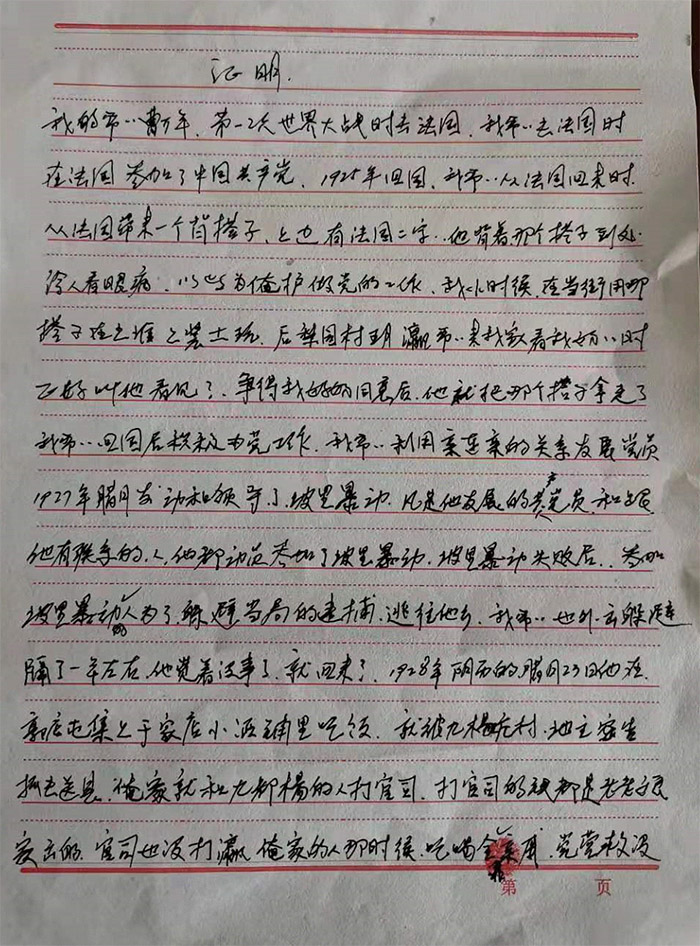 证明.
我的爷爷曹万年、第一次世界大战时去法国、我爷爷去法国时
在法国参加了中国共产党、1925年回国、我爷爷从法国回来时
从法国带来一个肖搭子、上边有法国二字、他背着那个搭子到处
给人看眼病、以此为掩护做党的工作、我小时候、在当街用那
搭子在土堆上装土玩、后梨园村 爷爷来我家看我奶奶时
正好叫他看见了、争得我奶奶同意后、他就把那个搭子拿走了
我爷爷回国后积极为党工作、我爷爷利用亲连亲的关系发展党员
1927年腊月发动和领导了坡里暴动、凡是他发展的共产党员、和跟
他有联系的人、他都动员参加了坡里暴动、坡里暴动失败后、参加
坡里暴动的人为了躲避当局的逮捕、逃往他乡、我爷爷也外出躲避
隔了一年左右、他觉着没事了、就回来了、1928年阴历的腊月23日他在
郭店屯集上于家店小酒铺里吃饭、就被九杨庄村、地主
抓去送县、俺家就和九都杨的人打官司、打官司的钱都是老老
卖去的、官司也没打赢、俺家的人那时候、吃喝全靠 、党
第 页